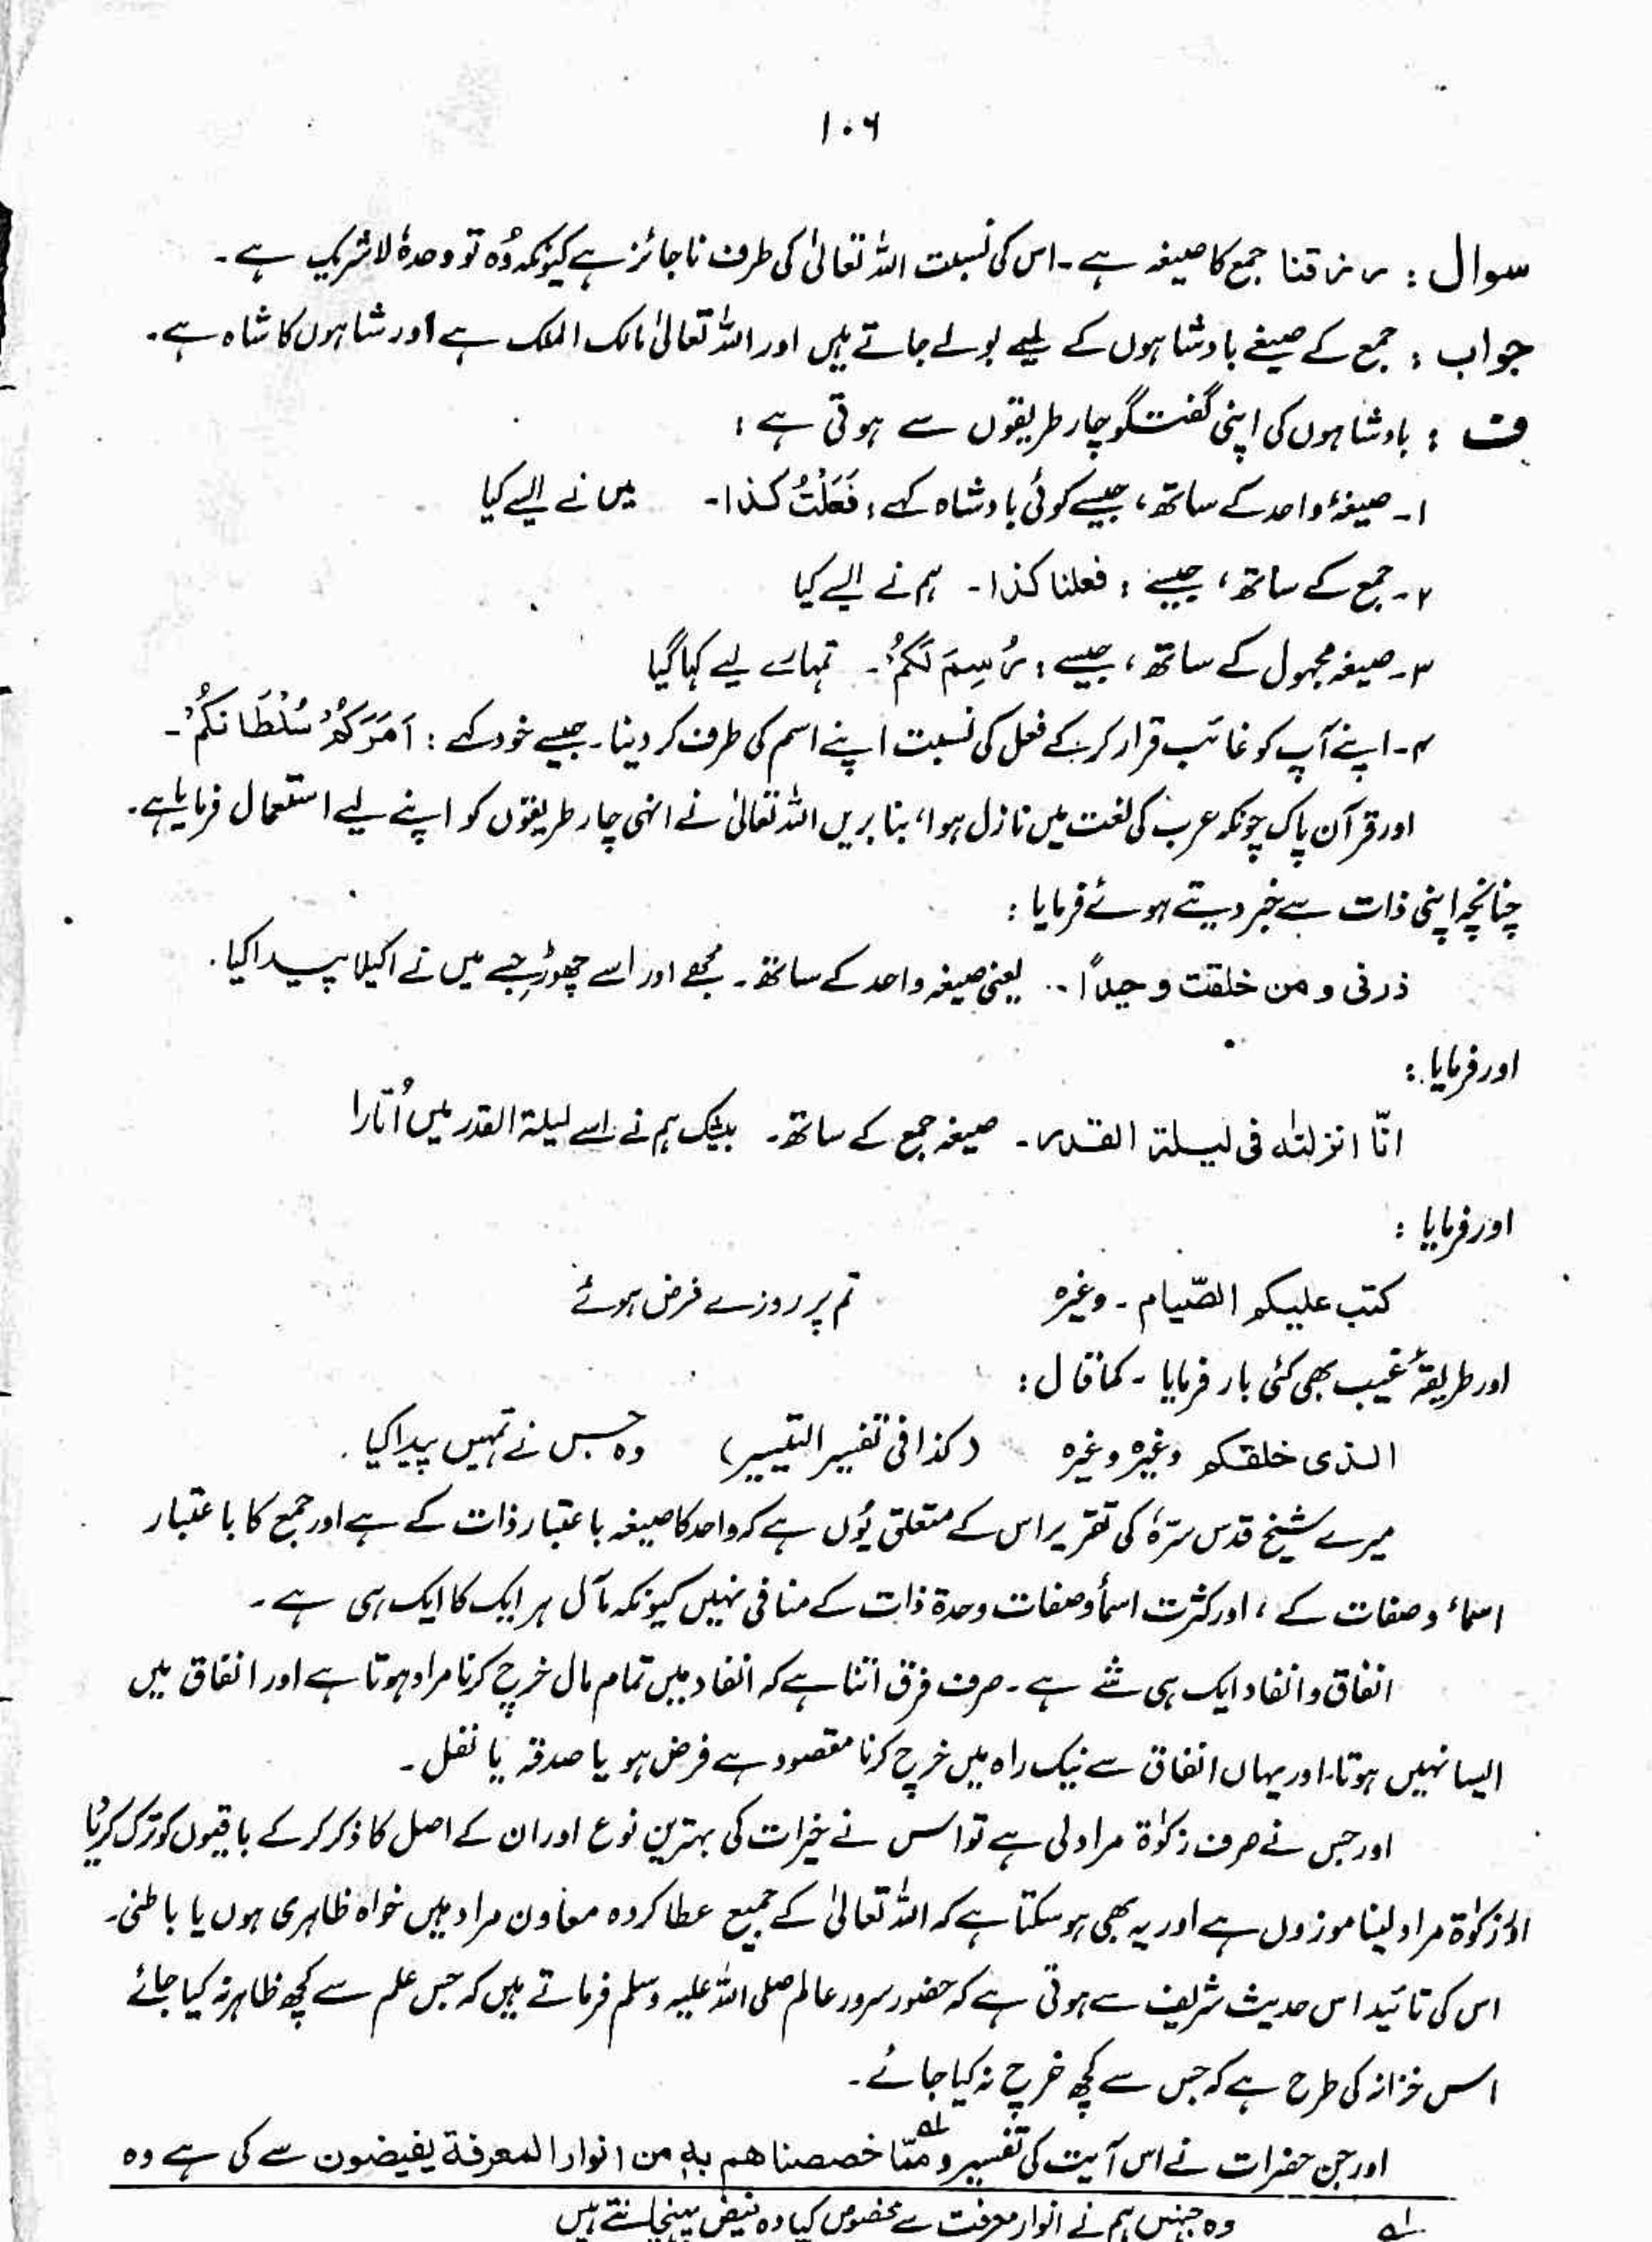 ۱۰۶
سوال : رزقنا جمع کا صیغہ ہے۔ اس کی نسبت اللہ تعالیٰ کی طرف ناجائز ہے کیونکہ وُہ تو وحدہٗ لاشریک ہے۔
جواب : جمع کے صیغے بادشاہوں کے لیے بولے جاتے ہیں اور اللہ تعالیٰ مالک الملک ہے اور شاہوں کا شاہ ہے۔
ف : بادشاہوں کی اپنی گفتگو چار طریقوں سے ہوتی ہے :
۱۔ صیغۂ واحد کے ساتھ، جیسے کوئی بادشاہ کہے : فَعَلْتُ کذا۔ میں نے ایسے کیا
۲۔ جمع کے ساتھ، جیسے : فعلنا کذا۔ ہم نے ایسے کیا
۳۔ صیغہ مجہول کے ساتھ، جیسے : رُسِمَ لَکُمْ۔ تمہارے لیے کہا گیا
۴۔ اپنے آپ کو غائب قرار کر کے فعل کی نسبت اپنے اسم کی طرف کر دینا۔ جیسے خود کہے : اَمَرَکُمْ سُلْطَانُکُمْ۔
اور قرآن پاک چونکہ عرب کی لغت میں نازل ہوا، بنا بریں اللہ تعالیٰ نے انہی چار طریقوں کو اپنے لیے استعمال فرمایا ہے۔
چنانچہ اپنی ذات سے خبر دیتے ہوئے فرمایا :
ذرنی و من خلقت وحیدًا۔۔ یعنی صیغہ واحد کے ساتھ۔ مجھے اور اسے چھوڑ جسے میں نے اکیلا پیدا کیا۔
اور فرمایا :
انّا انزلنٰہ فی لیلۃ القدر۔ صیغہ جمع کے ساتھ۔ بیشک ہم نے اسے لیلۃ القدر میں اُتارا
اور فرمایا :
کتب علیکم الصّیام۔ وغیرہ تم پر روزے فرض ہوئے
اور طریقۂ غیب بھی کئی بار فرمایا۔ کما قال :
الذی خلقکم وغیرہ وغیرہ (کذا فی تفسیر التیسیر) وہ جس نے تمہیں پیدا کیا۔
میرے شیخ قدس سرّہٗ کی تقریر اس کے متعلق یُوں ہے کہ واحد کا صیغہ باعتبار ذات کے ہے اور جمع کا باعتبار
اسماء و صفات کے ، اور کثرت اسمأ و صفات وحدۃ ذات کے منافی نہیں کیونکہ مآل ہر ایک کا ایک ہی ہے۔
انفاق و انفاد ایک ہی شے ہے۔ صرف فرق اتنا ہے کہ انفاد میں تمام مال خرچ کرنا مراد ہوتا ہے اور انفاق میں
ایسا نہیں ہوتا۔ اور یہاں انفاق سے نیک راہ میں خرچ کرنا مقصود ہے فرض ہو یا صدقہ یا نفل۔
اور جس نے صرف زکوٰۃ مراد لی ہے تو اس نے خیرات کی بہترین نوع اور ان کے اصل کا ذکر کر کے باقیوں کو ترک کر دیا
اور زکوٰۃ مراد لینا موزوں ہے اور یہ بھی ہو سکتا ہے کہ اللہ تعالیٰ کے جمیع عطا کردہ معاون مراد ہیں خواہ ظاہری ہوں یا باطنی۔
اس کی تائید اس حدیث شریف سے ہوتی ہے کہ حضور سرور عالم صلی اللہ علیہ وسلم فرماتے ہیں کہ جس علم سے کچھ ظاہر نہ کیا جائے
اس خزانہ کی طرح ہے کہ جس سے کچھ خرچ نہ کیا جائے۔
اور جن حضرات نے اس آیت کی تفسیر و ممّا خصصنا ھم بہٖ من انوار المعرفۃ یفیضون سے کی ہے وہ
لہ وہ جنہیں ہم نے انوار معرفت سے مخصوص کیا وہ فیض پہنچاتے ہیں